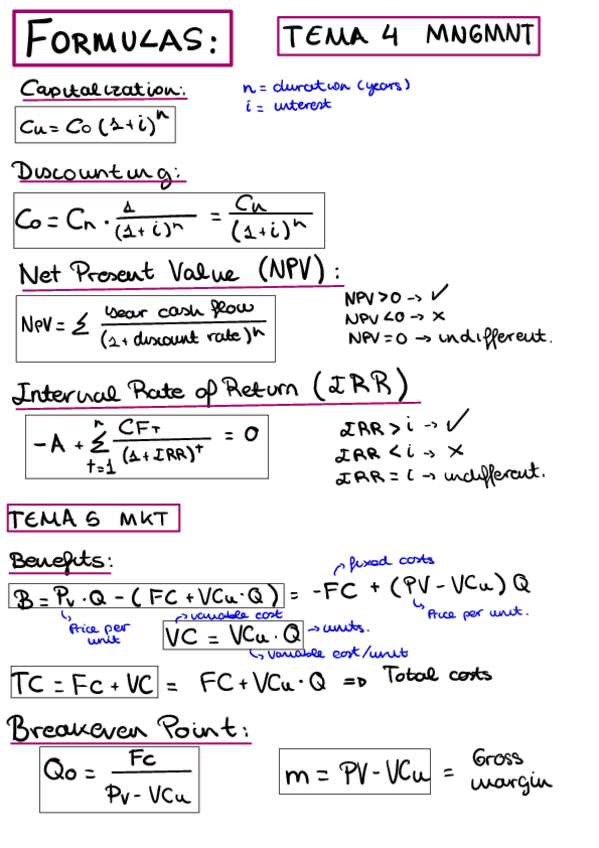 FORMULAS:
TEMA 4 MNGMNT
Capitalization:
n = duration (years)
i = interest
Cn = Co (1+i)^n
Discounting:
Co = Cn · 1/(1+i)^n = Cn/(1+i)^n
Net Present Value (NPV):
NPV = Σ year cash flow/(1+discount rate)^n
NPV>0 → ✓
NPV<0 → x
NPV=0 → indifferent.
Internal Rate of Return (IRR)
-A + Σ^n_t=1 CFt/(1+IRR)^t = 0
IRR > i → ✓
IRR < i → x
IRR = i → indifferent.
TEMA 5 MKT
Benefits:
fixed costs
B = Pv·Q - (FC + VCu·Q) = -FC + (PV - VCu) Q
Price per unit
variable cost
Price per unit.
VC = VCu·Q → units.
variable cost/unit
TC = FC + VC = FC + VCu·Q ⇒ Total costs
Breakeven Point:
Qo = Fc/Pv - VCu
m = PV - VCu = Gross margin